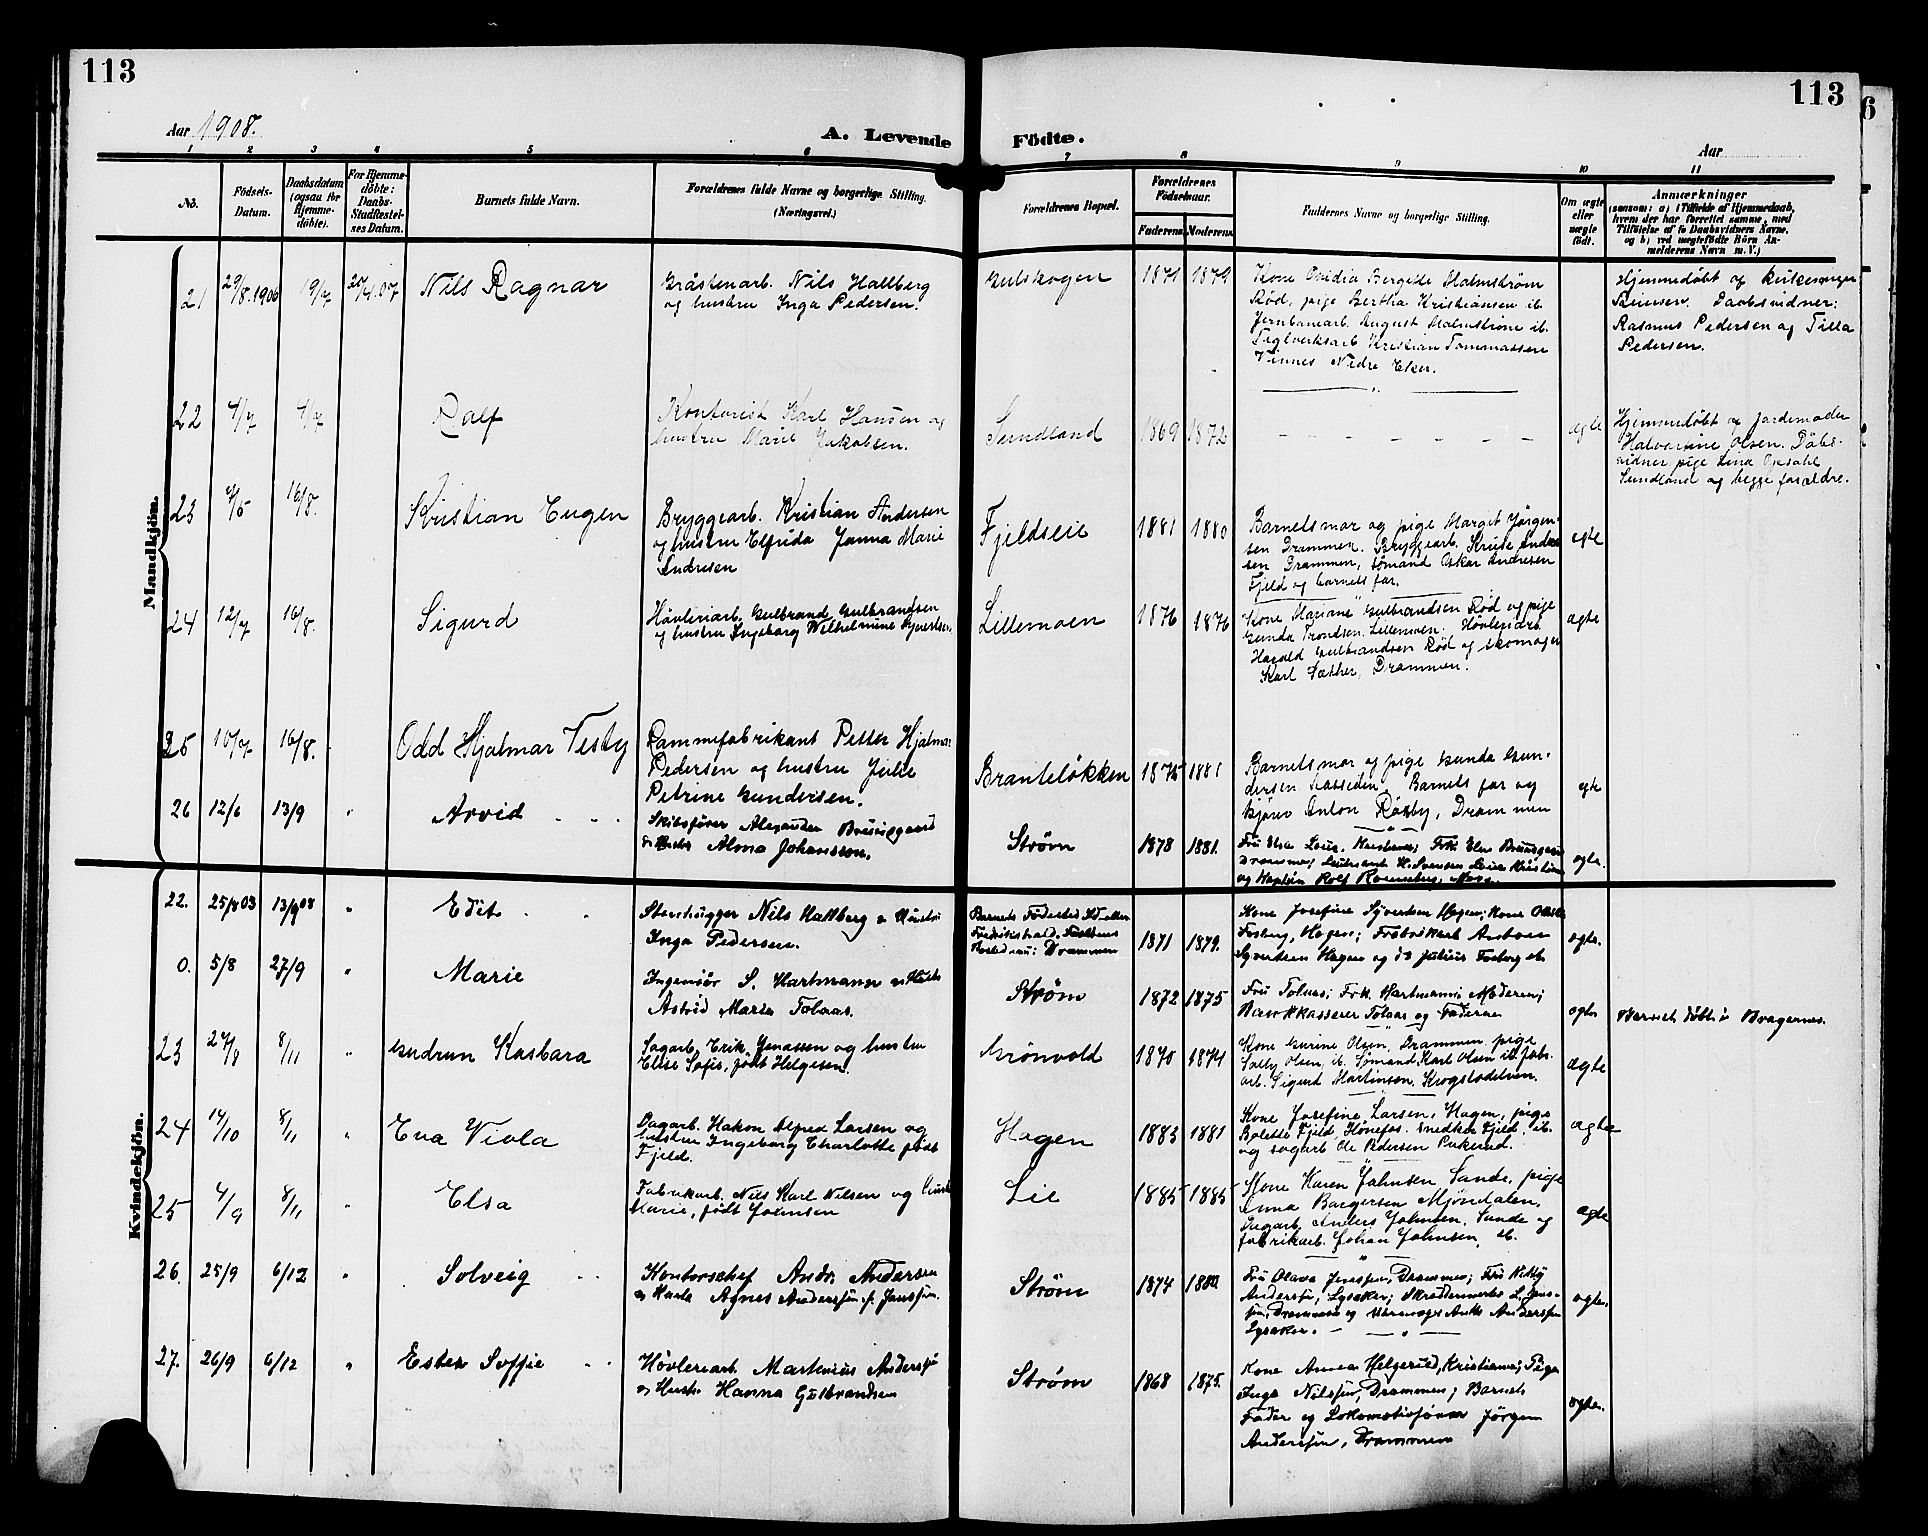 113
113
Aar 1908.
A. Levende Födte.
Aar
1 2 3 4 5 6 7 8 9 10 11
No.
Födsels-
Datum.
Daabsdatum
(ogsaa for
Hjemme-
döbte).
For Hjemme-
döbte:
Daabs-
Stadfæstel-
ses Datum.
Barnets fulde Navn.
Forældrenes fulde Navne og borgerlige Stilling.
(Næringsvei.)
Forældrenes Bopæl.
Forældrenes
Födselsaar.
Faderens Moderens
Faddernes Navne og borgerlige Stilling.
Om ægte
eller
uægte
födt.
Anmærkninger
(saasom: a) i Tilfælde af Hjemmedaab,
hvem der har forrettet samme, med
Tilföielse af to Daabsvidners Navne,
og b) ved uægtefödte Börn An-
melderens Navn m. V.)
Mandkjön.
21 29/8.1906 19/7 Nils Ragnar
Gråstenarb. Nils Hallberg
og hustru Inga Pedersen.
Gulskogen 1871 1879
Kone Ovidia Bergitte Malmstrøm
Rød, pige Bertha Kristiansen ib.
Jernbanearb. August Malmstrøm ib.
Teglverksarb. Kristian Tommassen
Vinnes Nedre Eker.
Hjemmedøbt af
Daabsvidner:
Rasmus Pedersen og Tilla
Pedersen.
22 4/7 4/7 Rolf
Kontorist Karl Hansen og
hustru Marie Jakobsen.
Sundland 1869 1872
– – – – – – –
egte
Hjemmedøbt af Jordemoder
Halvardine Olsen. Dåbs-
vidner pige Lina Opsahl
Sundland og begge forældre.
23 4/5 16/8. Kristian Eugen
Bryggearb. Kristian Andersen
og hustru Elfrida Janna Marie
Andresen
Fjeldseie 1881 1880
Barnets mor og pige Margit Jørgen-
sen Drammen. Bryggearb. Andre
sen Drammen, sømand Oskar Andresen
Fjeld og barnets far.
egte
24 12/7 16/8. Sigurd
Høvleriarb. Gulbrand Gulbrandsen
og hustru Ingeborg Wilhelmine Syvertsen
Lillemoen 1876 1876
Kone Mariane Gulbrandsen Rød og pige
Gunda Trondsen Lillemoen. Høvleriarb.
Harald Gulbrandsen Rød og skomager
Karl Drammen.
ægte
25 10/7 16/8. Odd Hjalmar Testy
Rammefabrikant Petter Hjalmar
Pedersen og hustru Julie
Petrine Gundersen.
Branteløkken 1875 1881
Barnets mor og pige Gunda Gun-
dersen Barnets far og
Anton Røsby, Drammen
egte
26 12/6 13/9 " Arvid
Skibsfører Alexander Bruusgaard
Alma Johansson.
Strøm 1878 1881.
Fru Elsa
Drammen; Leutenant H. Svensen
og Kaptein Rolf
ægte.
Kvindekjön.
22. 25/8 03 13/9 08 " Edit
Stenhugger Nils Hallberg & Hustru
Inga Pedersen.
Barnets Fødested
Fredrikshald.
nu: Drammen
1871 1879.
Kone Josefine Syvertsen Hagen; Kone
Fosberg, Hagen; Fabrikarb. Anton
Syvertsen Hagen og do Julius Fosberg do
ægte.
0. 5/8 27/9 " Marie
Ingeniør S. Hartmann & Hustru
Astrid Marie Tolaas.
Strøm 1872 1875
Fru Tolaas; Frk. Hartmann; Moderen;
Bankkasserer Tolaas og Faderen
ægte
Barnet døbt i Bragernes.
23 24/8 8/11 " Gudrun Kasbara
Sagarb. Erik Jonassen og hustru
Elise Sofie, født Helgesen.
Grønvold 1870 1874
Kone Gurine Olsen, Drammen, pige
Sally Olsen ib. Sømand Karl Olsen ib. fabr.
arb. Sigurd Martinsen, Krogstadelven.
ægte
24 14/10 8/11 " Eva Viola
Dagarb. Hakon Alfred Larsen og
hustru Ingeborg Charlotte født
Fjeld.
Hagen 1883 1881
Kone Josefine Larsen, Hagen, pige
Bolette Fjeld, Hønefos. Snedker Fjeld, ib.
og sagarb. Ole Pedersen Pukerud.
ægte
25 4/9 8/11 " Elsa
Fabrikarb. Nils Karl Nilsen og hustru
Marie, født Johnsen
Lie 1885 1885
Kone Karen Johnsen Sande, pige
Anna Borgersen Mjøndalen,
Dagarb. Anders Johnsen, Sande og
fabrikarb. Johan Johnsen, ib.
ægte
26. 25/9 6/12 " Solveig
Kontorschef Andr. Andersen
Agnes Anderssøn f. Janssøn.
Strøm 1874
Fru Olava Drammen; Frk Kitty
Anderssøn, Lysaker; Skreddermester L. Jans-
søn, Drammen og Anderssøn
Lysaker.
ægte.
27. 26/9 6/12 " Ester Soffie
Høvleriarb. Martinius Anderssøn
& Hustr. Hanna Gulbrandsen
Strøm 1868 1875.
Kone Anna Helgerud, Kristiania; Pige
Inga Nilssøn, Drammen; Barnets
Fader og Lokomotivfører Jørgen
Anderssøn, Drammen
ægte.